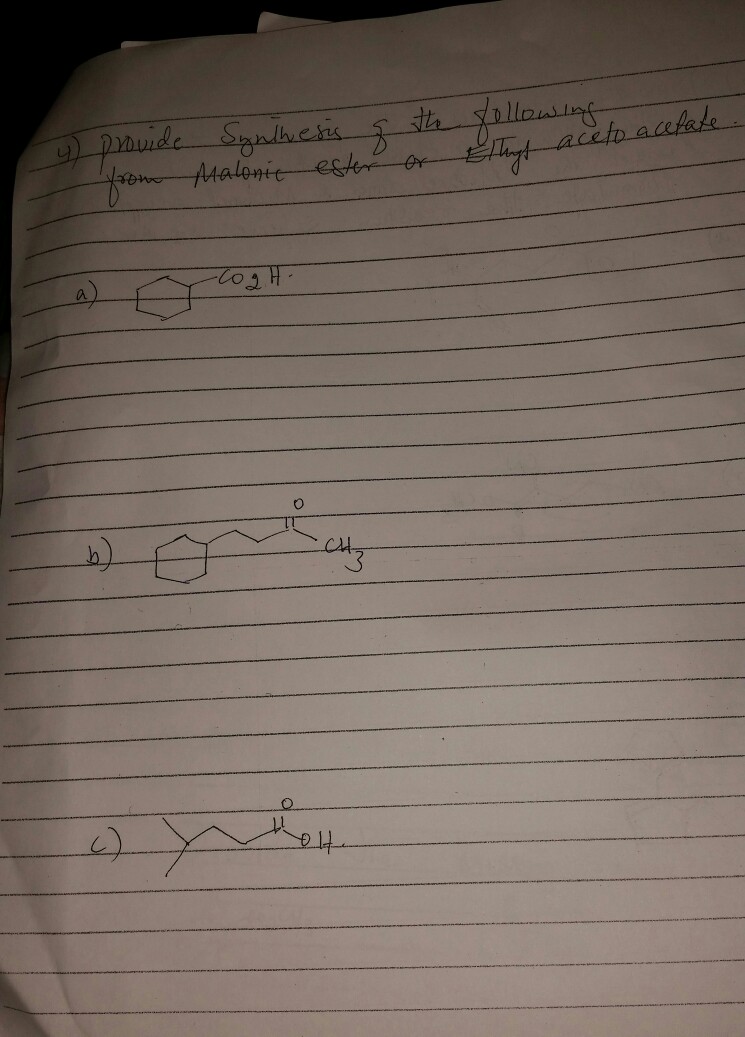 4) provide Synthesis of the following
from Malonic ester or Ethyl aceto acetate.
a) CO2H.
O
b) CH3
O
c) OH.